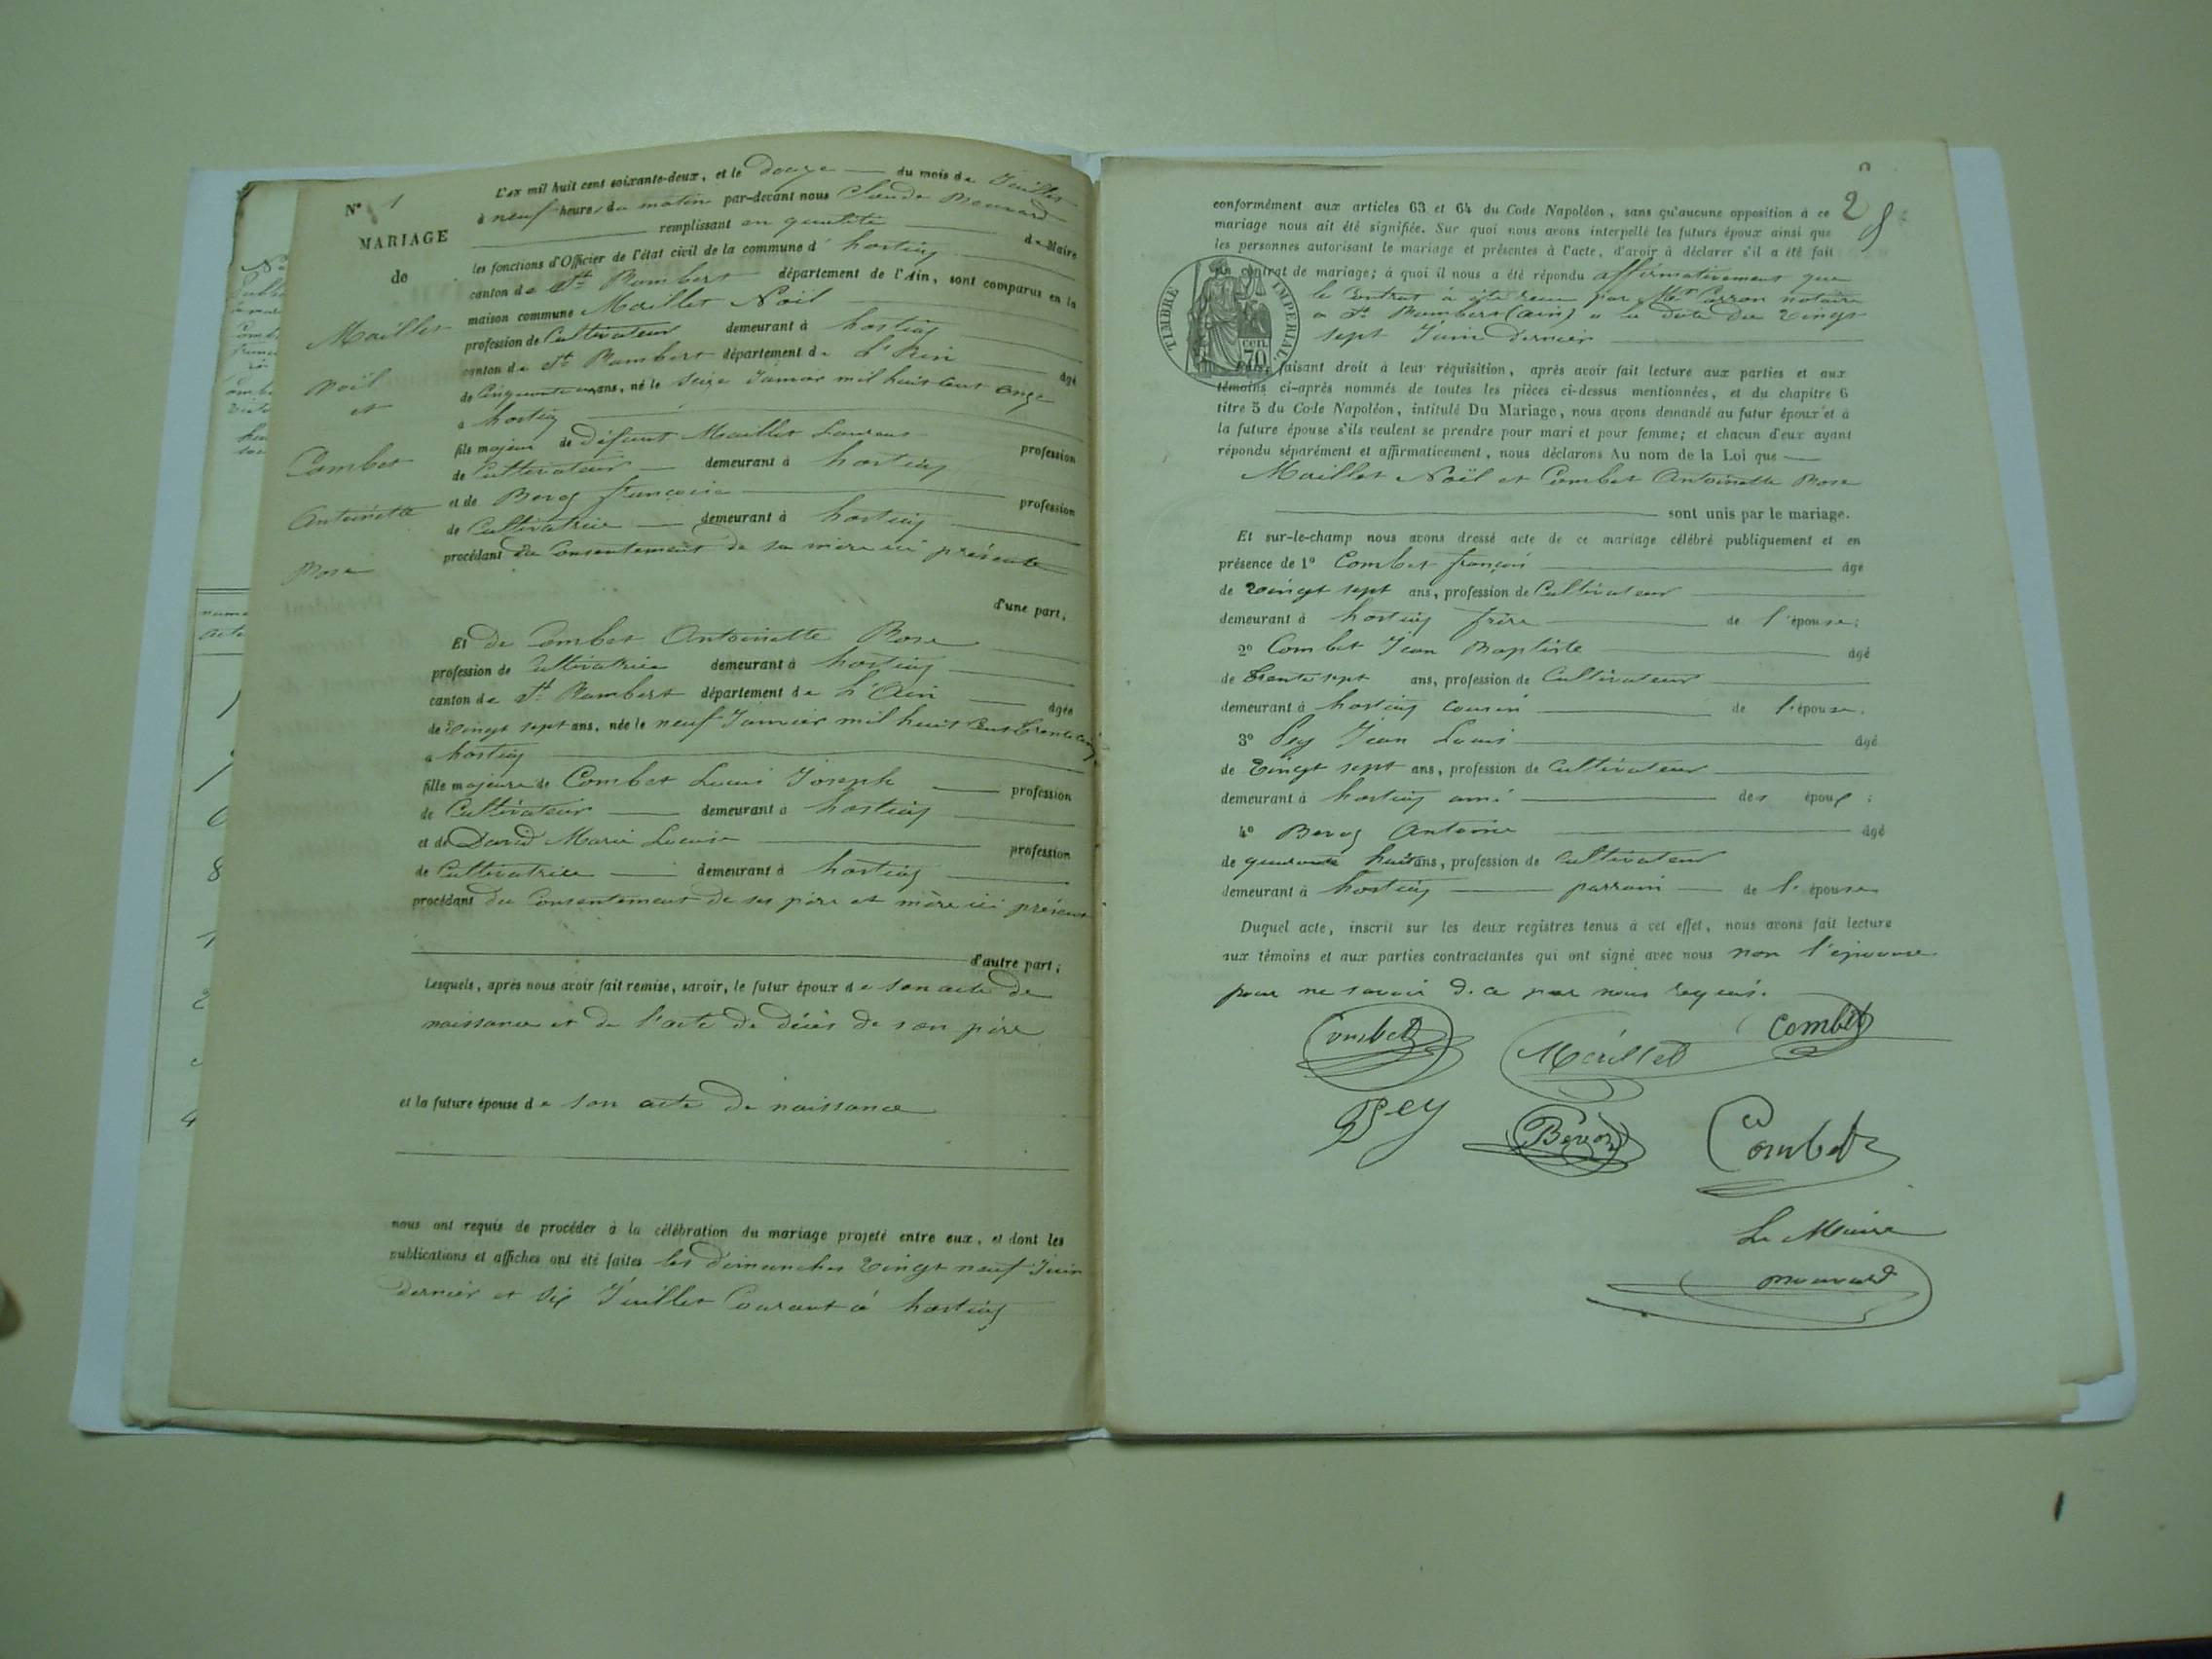 N° 1
MARIAGE
de
Maillet
Noël
et
Combet
Antoinette
Rose
L'an mil huit cent soixante-deux, et le douze du mois de Juillet
à neuf heures du matin par-devant nous Claude
remplissant en qualité de Maire
les fonctions d'Officier de l'état civil de la commune d' hostiaz
canton de St Rambert département de l'Ain, sont comparus en la
maison commune Maillet Noël
profession de Cultivateur demeurant à hostiaz
canton de St Rambert département de L'Ain âgé
de Cinquante un ans, né le Seize Janvier mil huit cent onze
à hostiaz
fils majeur de défunt Maillet Laurent profession
de Cultivateur demeurant à hostiaz
et de Béroz françoise profession
de Cultivatrice demeurant à hostiaz
procédant du Consentement de sa mère ici présente
d'une part,
Et de Combet Antoinette Rose
profession de Cultivatrice demeurant à hostiaz
canton de St Rambert département de L'Ain âgée
de Vingt sept ans, née le neuf Janvier mil huit Cent Trente Cinq
à hostiaz
fille majeure de Combet Louis Joseph profession
de Cultivateur demeurant à hostiaz
et de David Marie Louise profession
de Cultivatrice demeurant à hostiaz
procédant du Consentement de ses père et mère ici présent
d'autre part;
Lesquels, après nous avoir fait remise, savoir, le futur époux de son acte de
naissance et de l'acte de décès de son père
et la future épouse de son acte de naissance
nous ont requis de procéder à la célébration du mariage projeté entre eux, et dont les
publications et affiches ont été faites les dimanches Vingt neuf Juin
dernier et Six Juillet Courant à hostiaz
2
conformément aux articles 63 et 64 du Code Napoléon, sans qu'aucune opposition à ce
mariage nous ait été signifiée. Sur quoi nous avons interpellé les futurs époux ainsi que
les personnes autorisant le mariage et présentes à l'acte, d'avoir à déclarer s'il a été fait
un contrat de mariage; à quoi il nous a été répondu affirmativement que
le Contrat à été reçu par Me Carron notaire
a St Rambert (Ain) a la date du Vingt
sept Juin Dernier
TIMBRE IMPÉRIAL
CEN. 70
faisant droit à leur réquisition, après avoir fait lecture aux parties et aux
témoins ci-après nommés de toutes les pièces ci-dessus mentionnées, et du chapitre 6
titre 5 du Code Napoléon, intitulé Du Mariage, nous avons demandé au futur époux et à
la future épouse s'ils veulent se prendre pour mari et pour femme; et chacun d'eux ayant
répondu séparément et affirmativement, nous déclarons Au nom de la Loi que
Maillet Noël et Combet Antoinette Rose
sont unis par le mariage.
Et sur-le-champ nous avons dressé acte de ce mariage célébré publiquement et en
présence de 1° Combet françois âgé
de Vingt sept ans, profession de Cultivateur
demeurant à hostiaz frère de l'épouse;
2° Combet Jean Baptiste âgé
de Trente sept ans, profession de Cultivateur
demeurant à hostiaz cousin de l'épouse.
3° Pey Jean Louis âgé
de Vingt sept ans, profession de Cultivateur
demeurant à hostiaz ami des époux;
4° Béroz Antoine âgé
de quarante huit ans, profession de Cultivateur
demeurant à hostiaz parrain de l'épouse
Duquel acte, inscrit sur les deux registres tenus à cet effet, nous avons fait lecture
aux témoins et aux parties contractantes qui ont signé avec nous non l'épouse
pour ne savoir d. ce par nous requis.
Combet Maillet Combet
Pey Béroz Combet
Le Maire